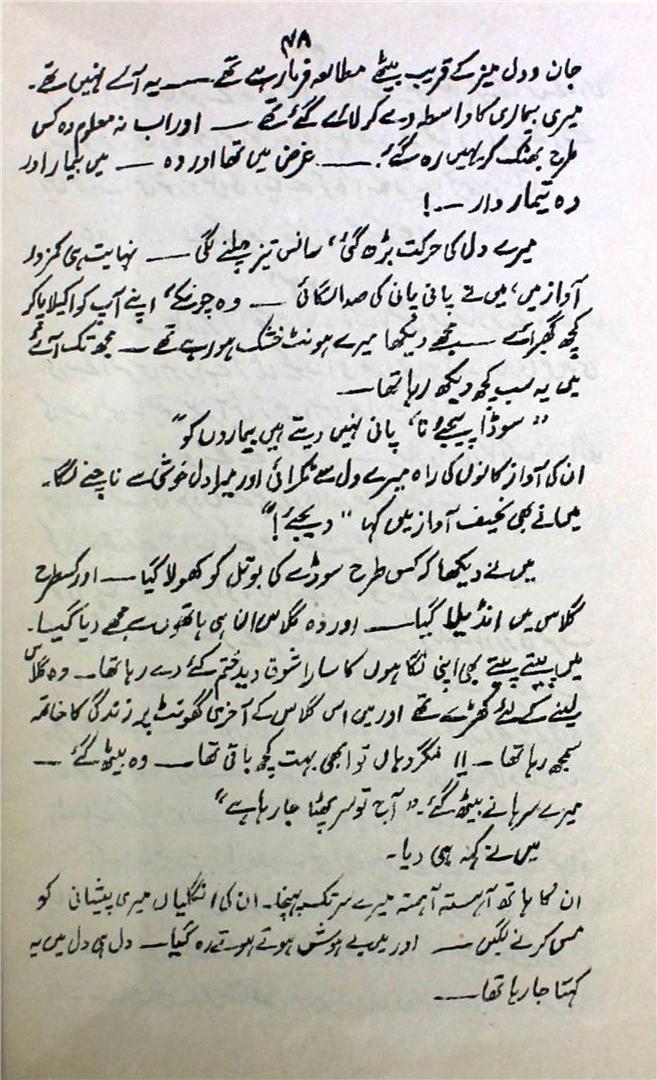 ۴۸
جان و دل میز کے قریب بیٹھے مطالعہ فرما رہے تھے ــــ یہ آئے نہیں تھے۔
میری بیماری کا واسطہ دے کر لائے گئے تھے ــ اور اب نہ معلوم وہ کس
طرح بھٹک کر یہیں رہ گئے! ـــ غرض میں تھا اور وہ ــ میں بیمار اور
وہ تیمار دار ــ۔!
میرے دل کی حرکت بڑھ گئی، سانس تیز چلنے لگی ــ نہایت ہی کمزور
آواز میں، میں نے پانی پانی کی صدا لگائی ــ وہ چونکے، اپنے آپ کو اکیلا پا کر
کچھ گھبرائے ــ مجھے دیکھا میرے ہونٹ خشک ہو رہے تھے ــ مجھ تک آئے
میں یہ سب کچھ دیکھ رہا تھا ــ
"سوڈا پیجئے نا، پانی نہیں دیتے ہیں بیماروں کو"
ان کی آواز کانوں کی راہ میرے دل سے ٹکرائی اور میرا دل خوشی سے ناچنے لگا۔
میں نے بھی نحیف آواز میں کہا "دیجئے!"
میں نے دیکھا کہ کس طرح سوڈے کی بوتل کو کھولا گیا ــ اور کسطرح
گلاس میں انڈیلا گیا ــ اور وہ گلاس ان ہی ہاتھوں سے مجھے دیا گیا۔
میں پیتے پیتے بھی اپنی نگاہوں کا سارا شوق دید ختم کئے دے رہا تھا۔ وہ گلاس
لینے کے لئے کھڑے تھے اور میں اس گلاس کے آخری گھونٹ پر زندگی کا خاتمہ
سمجھ رہا تھا ــ!! مگر وہاں تو ابھی بہت کچھ باقی تھا ــ وہ بیٹھ گئے ــ
میرے سرہانے بیٹھ گئے۔ "آج تو سر پھٹا جا رہا ہے"
میں نے کہہ ہی دیا۔
ان کا ہاتھ آہستہ آہستہ میرے سر تک پہنچا۔ ان کی انگلیاں میری پیشانی کو
مس کرنے لگیں ــ اور میں بے ہوش ہوتے ہوتے رہ گیا ــ دل ہی دل میں یہ
کہتا جا رہا تھا ــــ